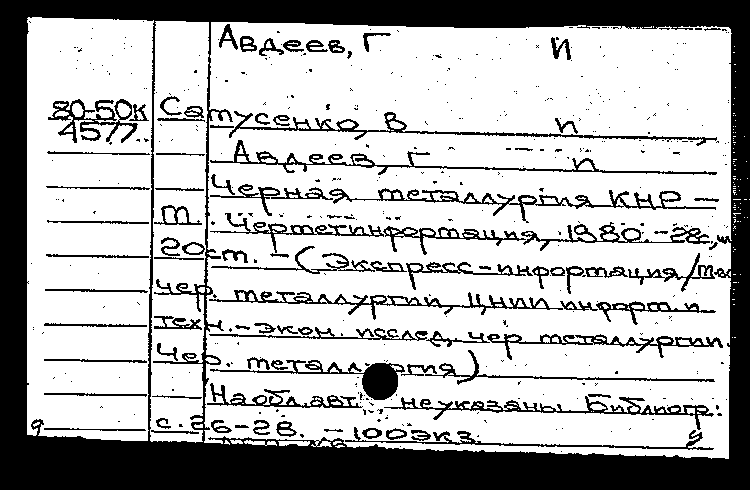 Авдеев, Г И
80-50к Сатусенко, В П
4577
Авдеев, Г П
Черная металлургия КНР —
М.: Черметинформация, 1980. - 28с,
20 см. - (Экспресс-информация/
чер. металлургии, ЦНИИ информ. и
техн.-экон. исслед, чер металлургии.
Чер. металлургия)
На обл. авт. не указаны Библиогр:
с. 26-28. - 100 экз.
9 9